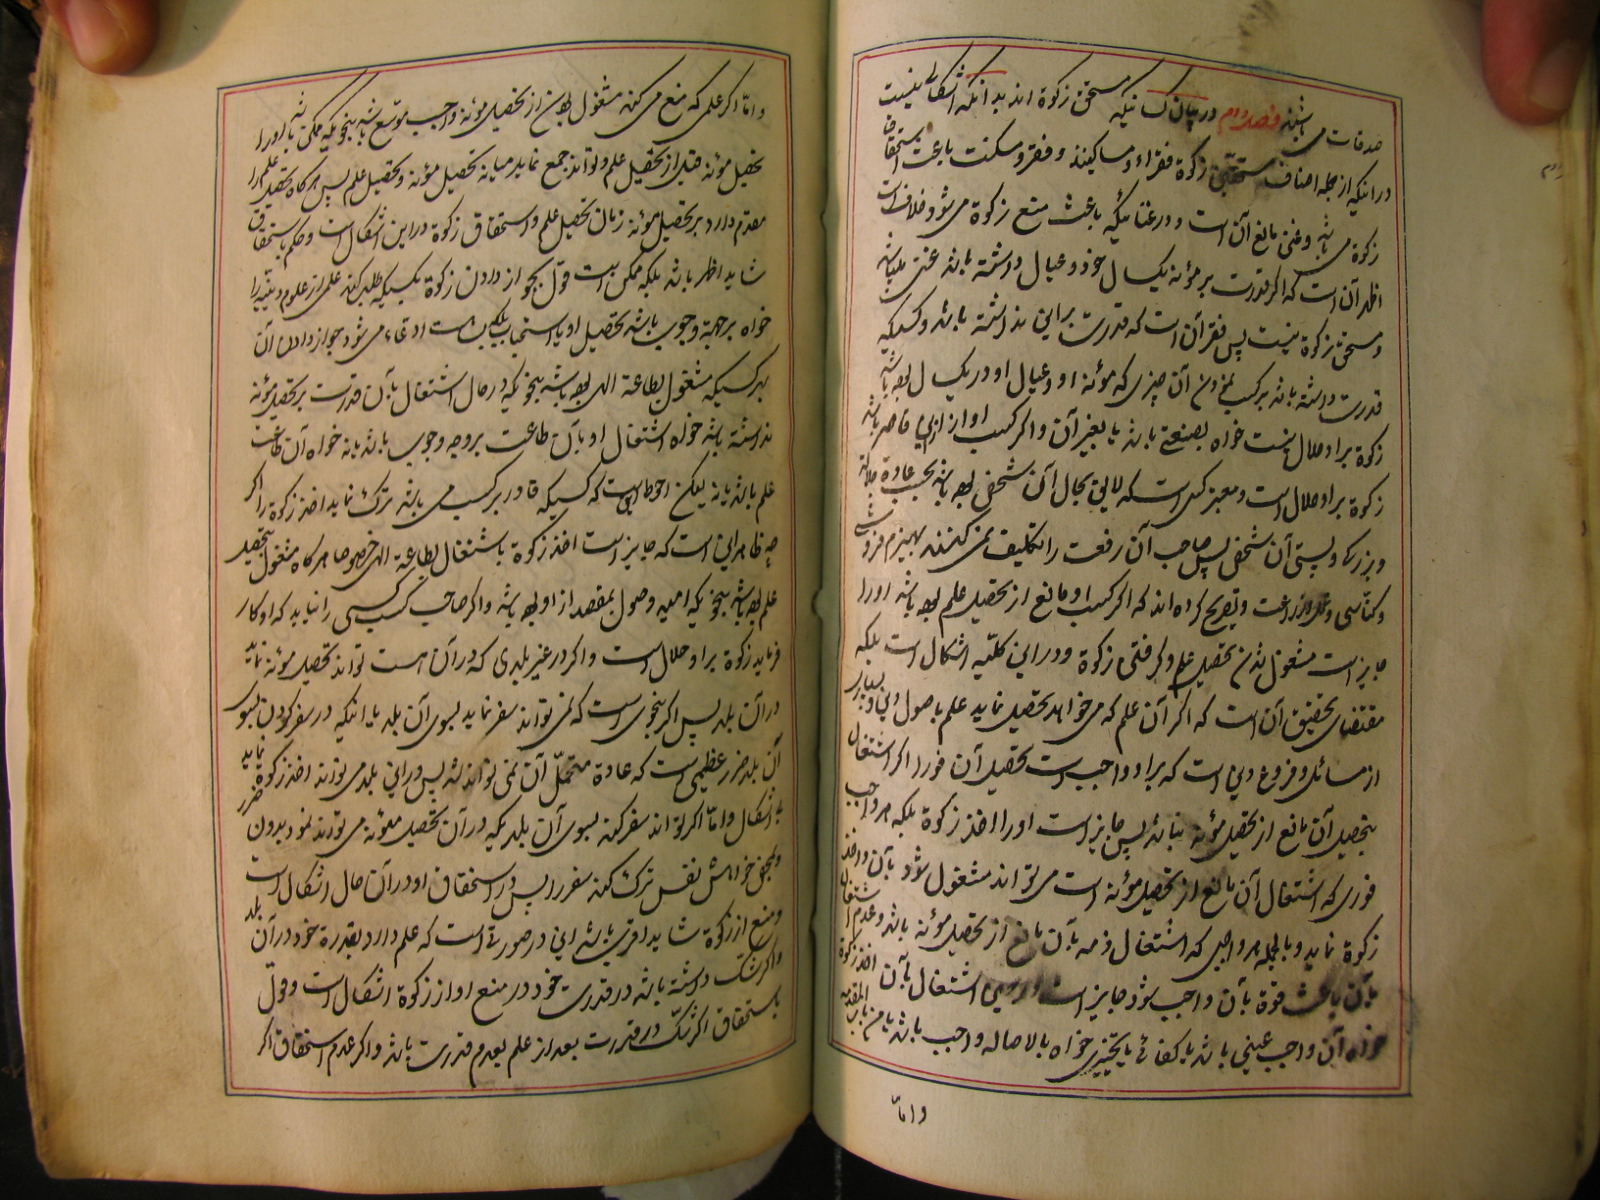 صدقات می باشند فصل دوم در بیان کسانیکه مستحق زکوة اند بدانکه اشکالی نیست
در اینکه از جمله اصناف مستحقین زکوة فقراء و مساکینند و فقر و مسکنت باعث استحقاق
زکوة می باشد و غنی مانع آن است و در غنائیکه باعث منع زکوة می شود خلاف است
اظهر آن است که اگر قدرت بر مؤنه یکسال خود و عیال داشته باشد غنی میباشد
و مستحق زکوة نیست پس فقر آن است که قدرت براین نداشته باشد و کسیکه
قدرت داشته باشد بر کسب نمودن آن چیزی که مؤنه او و عیال او در یکسال بوده باشد
زکوة بر او حلال نیست خواه بصنعة باشد یا بغیر آن و اگر کسب او از ازای قاصر باشد
زکوة بر او حلال است و معتبر کسبی است که لایق بحال آن شخص بوده باشد بحسب عادة جلالة
و بزرگی و پستی آن شخص پس صاحب آن رفعت را تکلیف نمی کنند بهیزم فروشی
و کناسی و زراعت و تصریح کرده اند که اگر کسب او مانع از تحصیل علم بوده باشد او را
جایز است مشغول شدن بتحصیل علم و گرفتن زکوة و در این کلیه اشکال است بلکه
مقتضای تحقیق آن است که اگر آن علم که می خواهد تحصیل نماید علم باصول دین و بسیاری
از مسائل و فروع دین است که بر او واجب است تحصیل آن فورا اگر اشتغال
بتحصیل آن مانع از تحصیل مؤنه نباشد پس جایز است او را اخذ زکوة بلکه هر واجب
فوری که اشتغال آن مانع از تحصیل مؤنه است می تواند مشغول شود بآن و اخذ
زکوة نماید و بالجمله هر واجبی که اشتغال ذمه بآن مانع از تحصیل مؤنه باشد و عدم اشتغال
بآن باعث فوة بآن واجب شود جایز است اشتغال بآن اخذ زکوة
خواه آن واجب عینی باشد یا کفائی یا تخییری خواه بالاصاله واجب باشد یا من باب المقدمه
و اما
و اما اگر علمی که منع می کند مشغول بودن از تحصیل مؤنه واجب موسع باشد بنحویکه ممکن باشد او را
تحصیل مؤنه قبل از تحصیل علم و تواند جمع نماید میانه تحصیل مؤنه و تحصیل علم پس هر گاه تحصیل علم را
مقدم دارد بر تحصیل مؤنه زمان تحصیل علم و استحقاق زکوة در این اشکال است و حکم باستحقاق
شاید اظهر باشد بلکه ممکن است قول بجواز دادن زکوة بکسیکه طلب کند علمی از علوم دینیه را
خواه بر جهة وجوب باشد تحصیل او یا استحباب بلکه است ادعاء می شود جواز دادن آن
بهر کسیکه مشغول بطاعة الهی بوده باشد بنحویکه در حال اشتغال بآن قدرت بر تحصیل مؤنه
نداشته باشد خواه اشتغال او بآن طاعت بر وجه وجوب باشد یا نه خواه آن طاعت
علم باشد یا نه لیکن احوط این است که کسیکه قادر بر کسب می باشد ترک نماید اخذ زکوة را اگر
چه ظاهر این است که جایز است اخذ زکوة باشتغال بطاعة الهی خصوصا هر گاه مشغول بتحصیل
علم بوده باشد بنحویکه امید وصول بمقصد از او بوده باشد و اگر صاحب کسب کسی را نیابد که او کار
فرماید زکوة بر او حلال است و اگر در غیر بلدی که در آن هست تواند تحصیل مؤنه نماید
در آن بلد پس اگر بنحوی است که نمی تواند سفر نماید بسوی آن بلد یا اینکه در سفر کردن بسوی
آن بلد ضرر عظیمی است که عادة متحمل آن نمی تواند شد پس در این بلد می تواند اخذ زکوة نماید
بی اشکال و اما اگر تواند سفر کند بسوی آن بلدیکه در آن تحصیل مؤنه می تواند نمود بدون ضرر
و بمحض خواهش نفس ترک کند سفر را پس در استحقاق او در آن حال اشکال است
و منع از زکوة شاید اقوی باشد این در صورتی است که علم دارد بقدرة خود در آن بلد
و اگر شک داشته باشد در قدرت خود در منع او از زکوة اشکال است و قول
باستحقاق اگر شک در قدرت بعد از علم بعدم قدرت باشد و اگر عدم استحقاق اگر